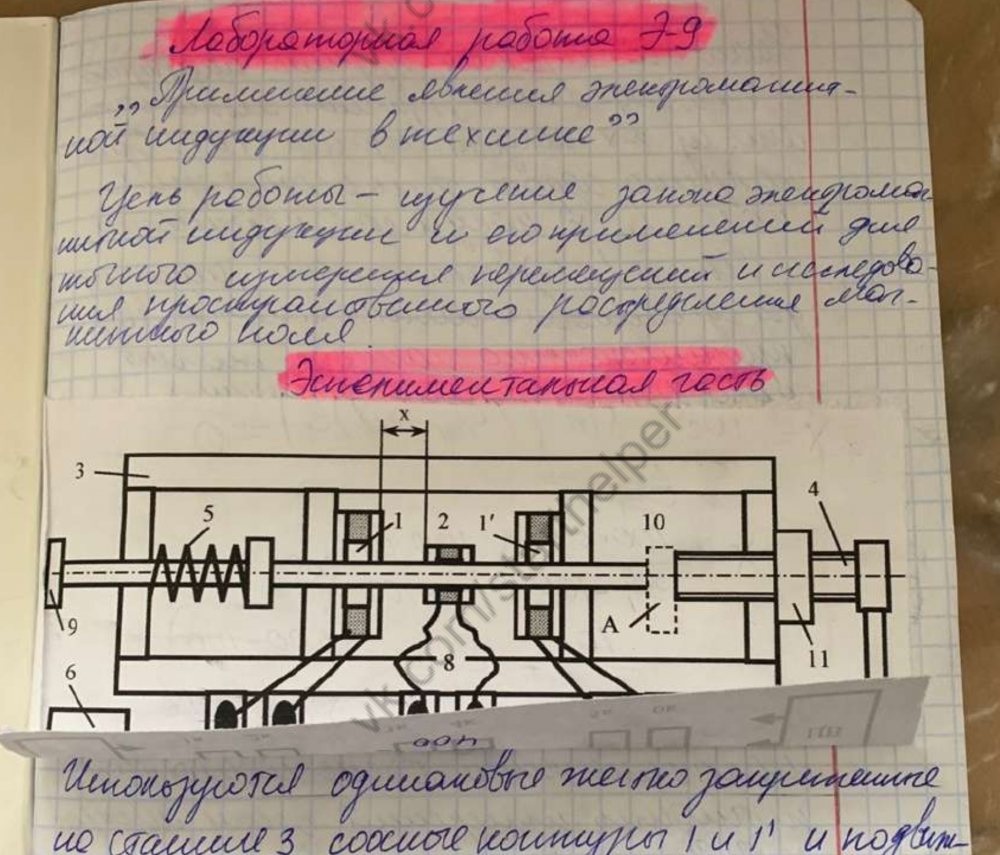 Лабораторная работа Э-9
„Применение явления электромагнит-
ной индукции в технике”
Цель работы – изучение закона электромаг-
нитной индукции и его применений для
точного измерения перемещений и исследова-
ния пространственного распределения маг-
нитного поля.
Экспериментальная часть
x
3
5
1
2
1'
10
4
9
А
11
8
6
vk.com/studhelper
Используются одинаковые жестко закрепленные
на станине 3 соосные контуры 1 и 1' и подвиж-